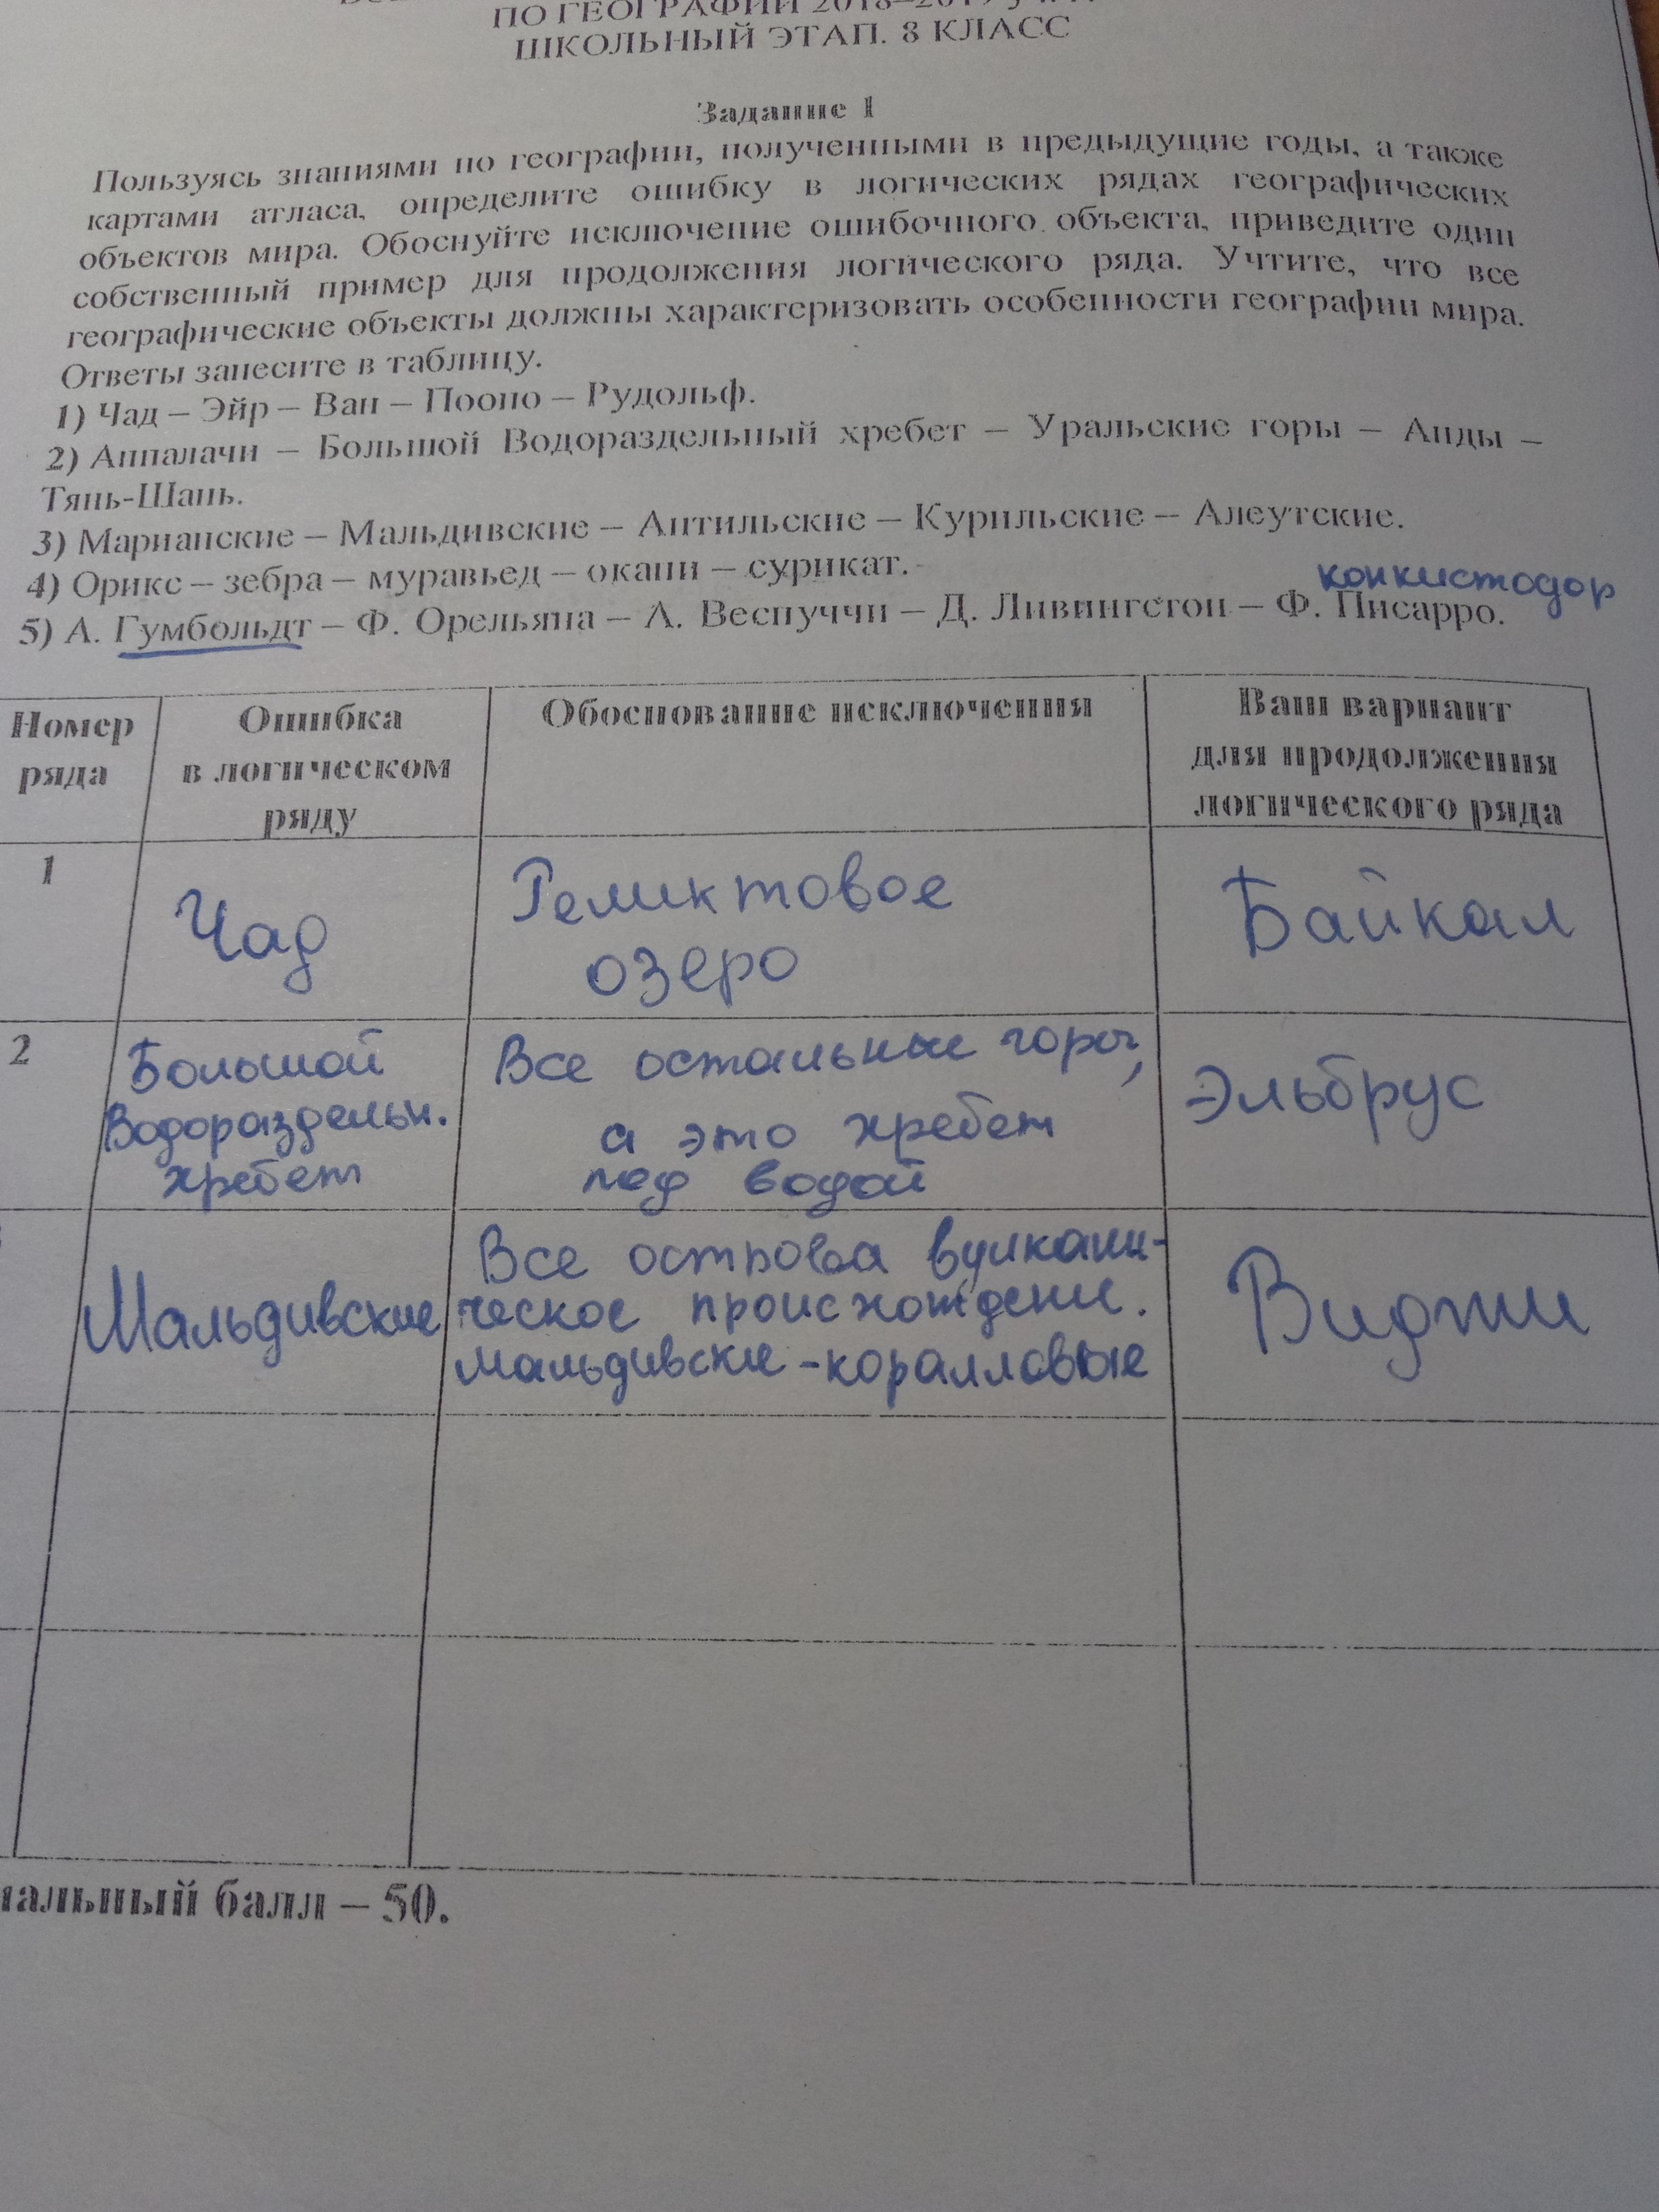 ПО ГЕОГРАФИИ 2018–2019 уч. г.
ШКОЛЬНЫЙ ЭТАП. 8 КЛАСС
Задание 1
Пользуясь знаниями по географии, полученными в предыдущие годы, а также
картами атласа, определите ошибку в логических рядах географических
объектов мира. Обоснуйте исключение ошибочного объекта, приведите один
собственный пример для продолжения логического ряда. Учтите, что все
географические объекты должны характеризовать особенности географии мира.
Ответы занесите в таблицу.
1) Чад – Эйр – Ван – Поопо – Рудольф.
2) Аппалачи – Большой Водораздельный хребет – Уральские горы – Анды –
Тянь-Шань.
3) Марианские – Мальдивские – Антильские – Курильские – Алеутские.
4) Орикс – зебра – муравьед – окапи – сурикат.
конкистодор
5) А. Гумбольдт – Ф. Орельяна – А. Веспуччи – Д. Ливингстон – Ф. Писарро.
Номер ряда
Ошибка в логическом ряду
Обоснование исключения
Ваш вариант для продолжения логического ряда
1
Чад
Реликтовое
озеро
Байкал
2
Большой
Водораздельн.
хребет
Все остальные горы,
а это хребет
под водой
Эльбрус
Мальдивские
Все острова вулкани-
ческое происхождени.
Мальдивские -коралловые
Виджи
мальный балл – 50.